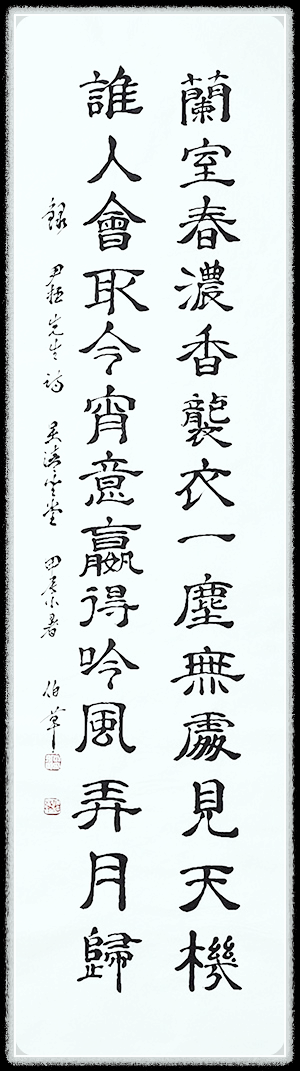 蘭室春濃香襲衣一塵無處見天機
誰人會取今宵意贏得吟風弄月歸
錄 尹拯先生詩 小暑 伯草